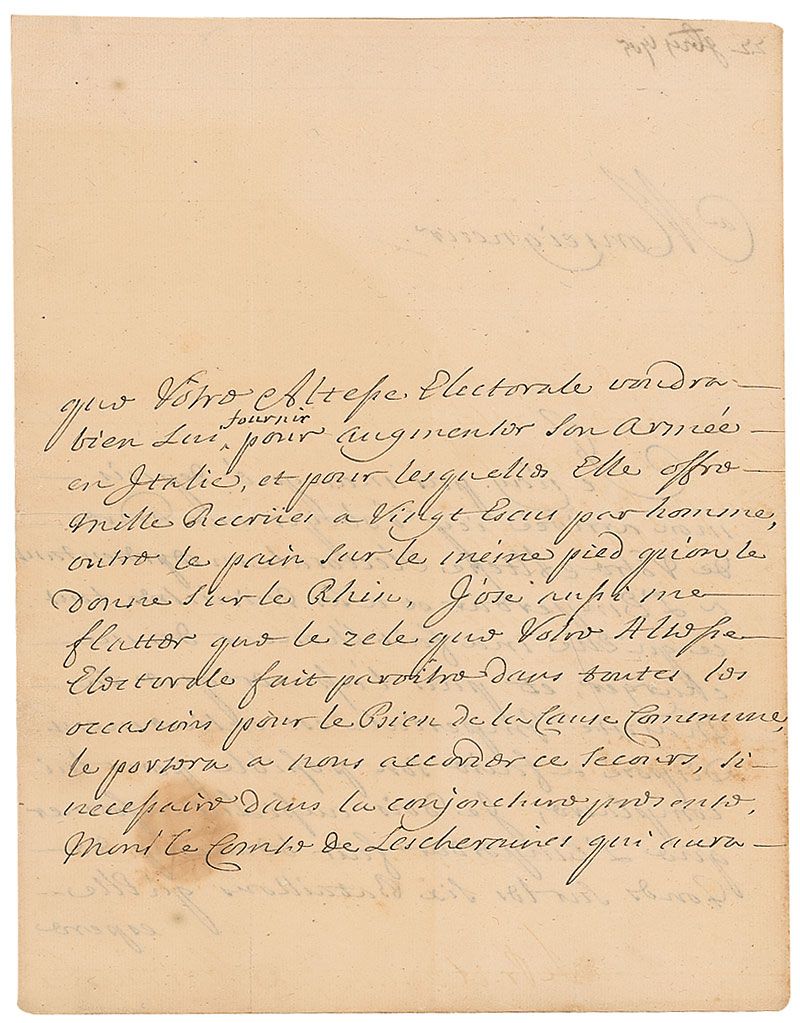 que Vôtre Altesse Electorale voudra
bien Lui fournir pour augmenter Son Armée
en Italie, et pour lesquelles Elle offre
mille Recrües a Vingt Escus par homme,
outre le pain sur le méme pied qu'on le
donne sur le Rhin. J'ose aussi me
flatter que le zele que Votre Altesse
Electorale fait paroître dans toutes les
occasions pour le Bien de la Cause Commune,
le portera a nous accorder ce secours, si
necessaire dans la conjoncture presente.
Monsr le Comte de Lescheraines qui aura